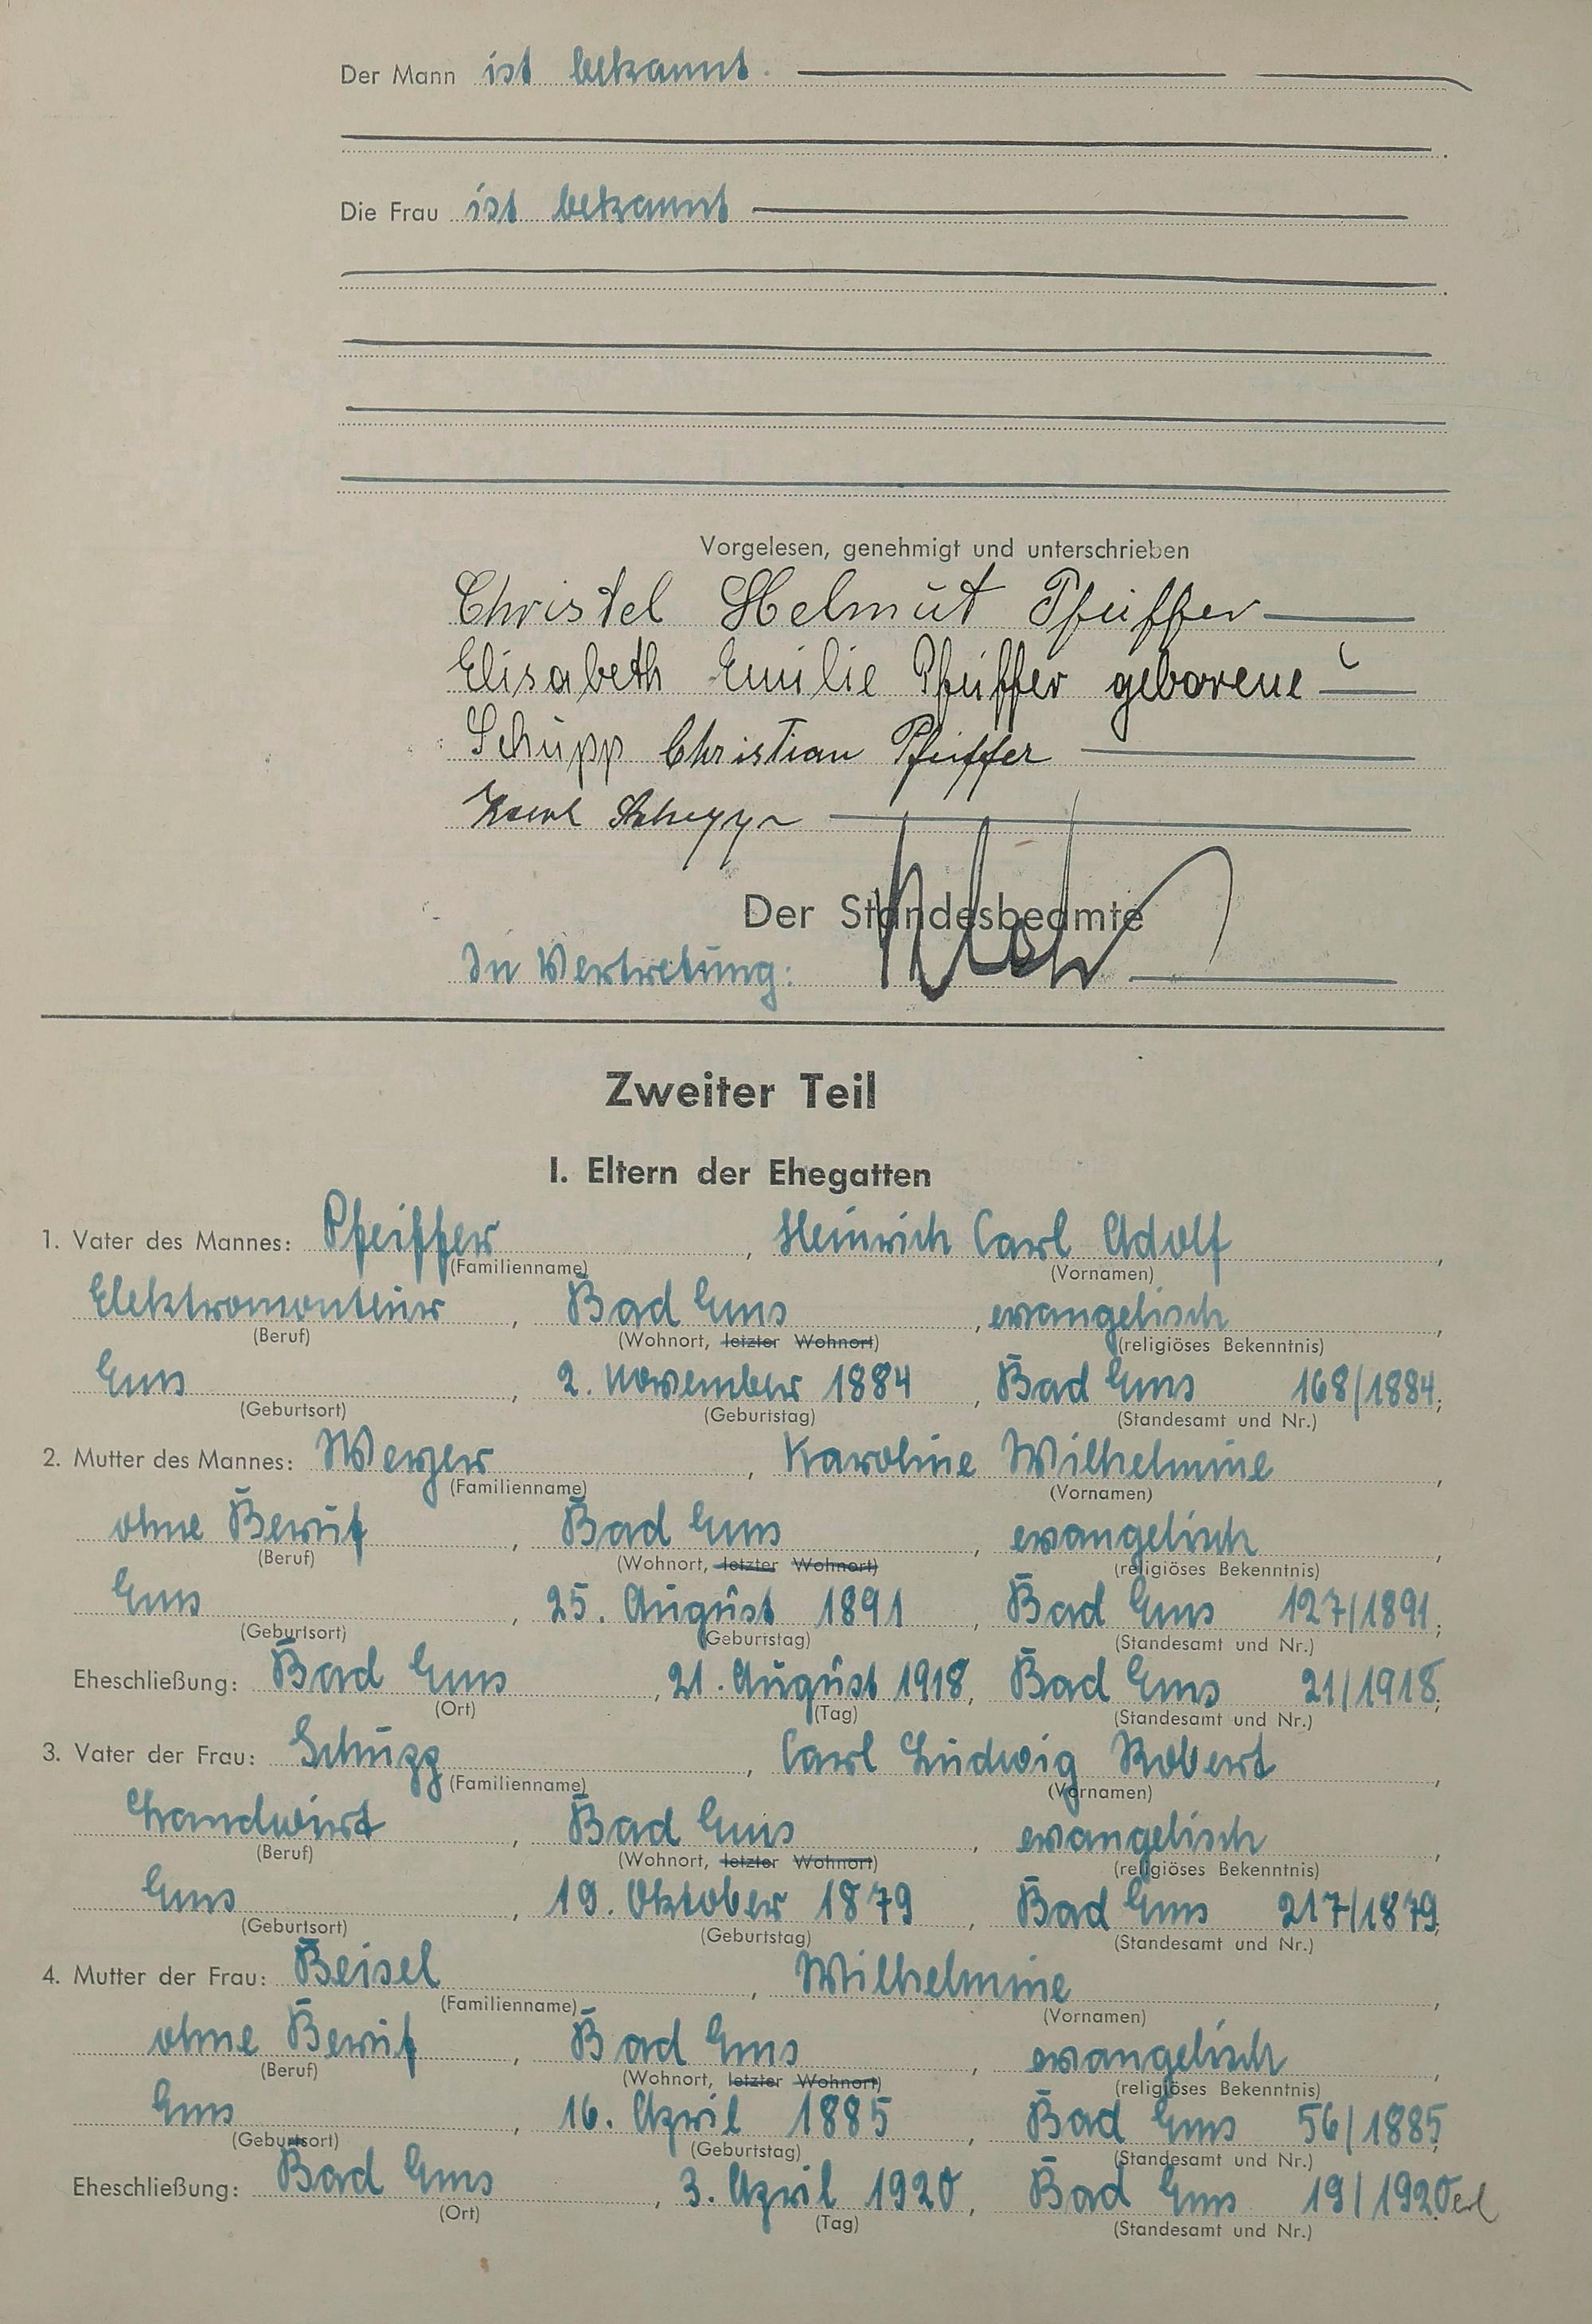 Der Mann ist bekannt.
Die Frau ist bekannt
Vorgelesen, genehmigt und unterschrieben
Christel Helmut Pfeiffer
Elisabeth Emilie Pfeiffer geborene
Schupp Christian Pfeiffer
Karl Schupp
Der Standesbeamte
In Vertretung:
Zweiter Teil
I. Eltern der Ehegatten
1. Vater des Mannes: Pfeiffer, Heinrich Carl Adolf,
(Familienname) (Vornamen)
Elektromonteur, Bad Ems, evangelisch,
(Beruf) (Wohnort, letzter Wohnort) (religiöses Bekenntnis)
Ems, 2. November 1884, Bad Ems 168/1884;
(Geburtsort) (Geburtstag) (Standesamt und Nr.)
2. Mutter des Mannes: Weyer, Karoline Wilhelmine,
(Familienname) (Vornamen)
ohne Beruf, Bad Ems, evangelisch,
(Beruf) (Wohnort, letzter Wohnort) (religiöses Bekenntnis)
Ems, 25. August 1891, Bad Ems 127/1891;
(Geburtsort) (Geburtstag) (Standesamt und Nr.)
Eheschließung: Bad Ems, 21. August 1918, Bad Ems 21/1918;
(Ort) (Tag) (Standesamt und Nr.)
3. Vater der Frau: Schupp, Carl Ludwig Robert,
(Familienname) (Vornamen)
Landwirt, Bad Ems, evangelisch,
(Beruf) (Wohnort, letzter Wohnort) (religiöses Bekenntnis)
Ems, 19. Oktober 1879, Bad Ems 217/1879;
(Geburtsort) (Geburtstag) (Standesamt und Nr.)
4. Mutter der Frau: Beisel, Wilhelmine,
(Familienname) (Vornamen)
ohne Beruf, Bad Ems, evangelisch,
(Beruf) (Wohnort, letzter Wohnort) (religiöses Bekenntnis)
Ems, 16. April 1885, Bad Ems 56/1885;
(Geburtsort) (Geburtstag) (Standesamt und Nr.)
Eheschließung: Bad Ems, 3. April 1920, Bad Ems 19/1920.
(Ort) (Tag) (Standesamt und Nr.)